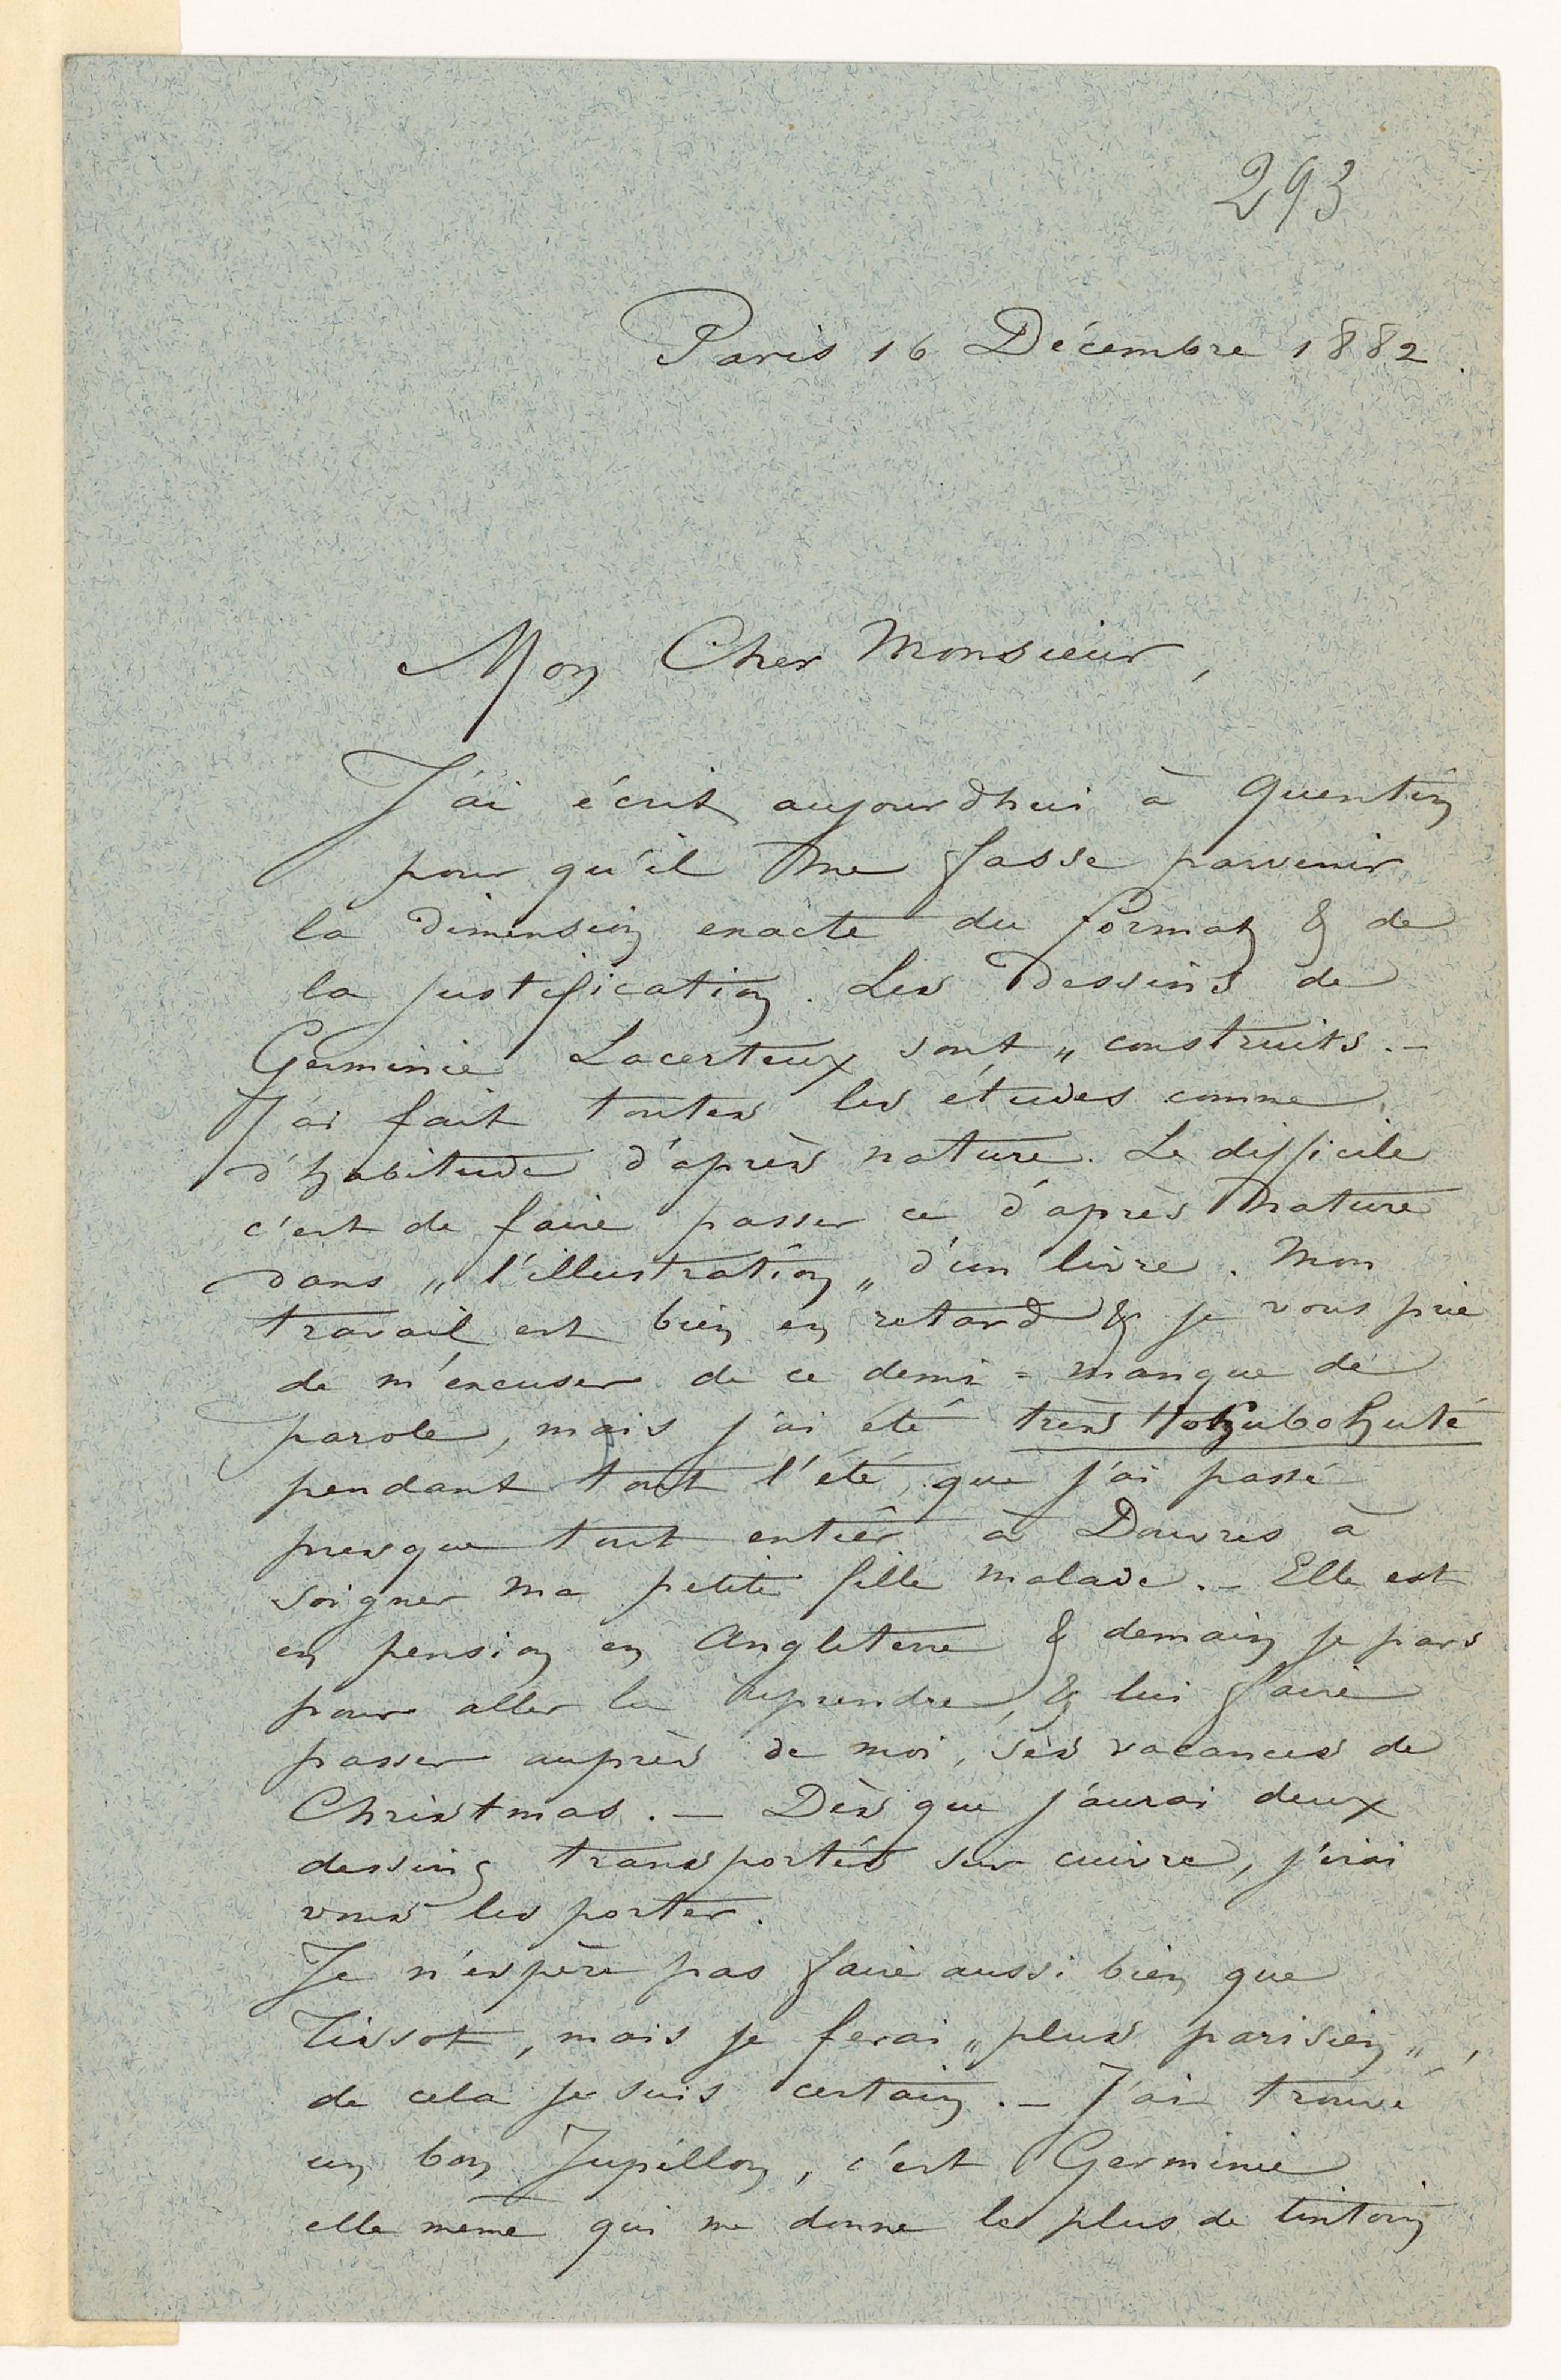 293
Paris 16 Décembre 1882.
Mon Cher Monsieur,
J'ai écrit aujourdhui à Quentin
pour qu'il me fasse parvenir
la dimension exacte du format & de
la justification. Les Dessins de
Germinie Lacerteux sont „ construits. –
J'ai fait toutes les études comme
d'habitude d'après nature. Le difficile
c'est de faire passer ce d'après nature
dans „ l'illustration „ d'un livre. Mon
travail est bien en retard & je vous prie
de m'excuser de ce demi = manque de
parole, mais j'ai été très Hohubohuté
pendant tout l'été, que j'ai passé
presque tout entier à Douvres à
soigner ma petite fille malade. – Elle est
en pension en Angleterre & demain je pars
pour aller la reprendre, & lui faire
passer auprès de moi, ses vacances de
Christmas. – Dès que j'aurai deux
dessins transportés sur cuivre, j'irai
vous les porter.
Je n'espère pas faire aussi bien que
Tissot, mais je ferai „ plus parisien „ ,
de cela je suis certain. – J'ai trouvé
un bon Jupillon, c'est Germinie
elle même qui me donne le plus de tintoin